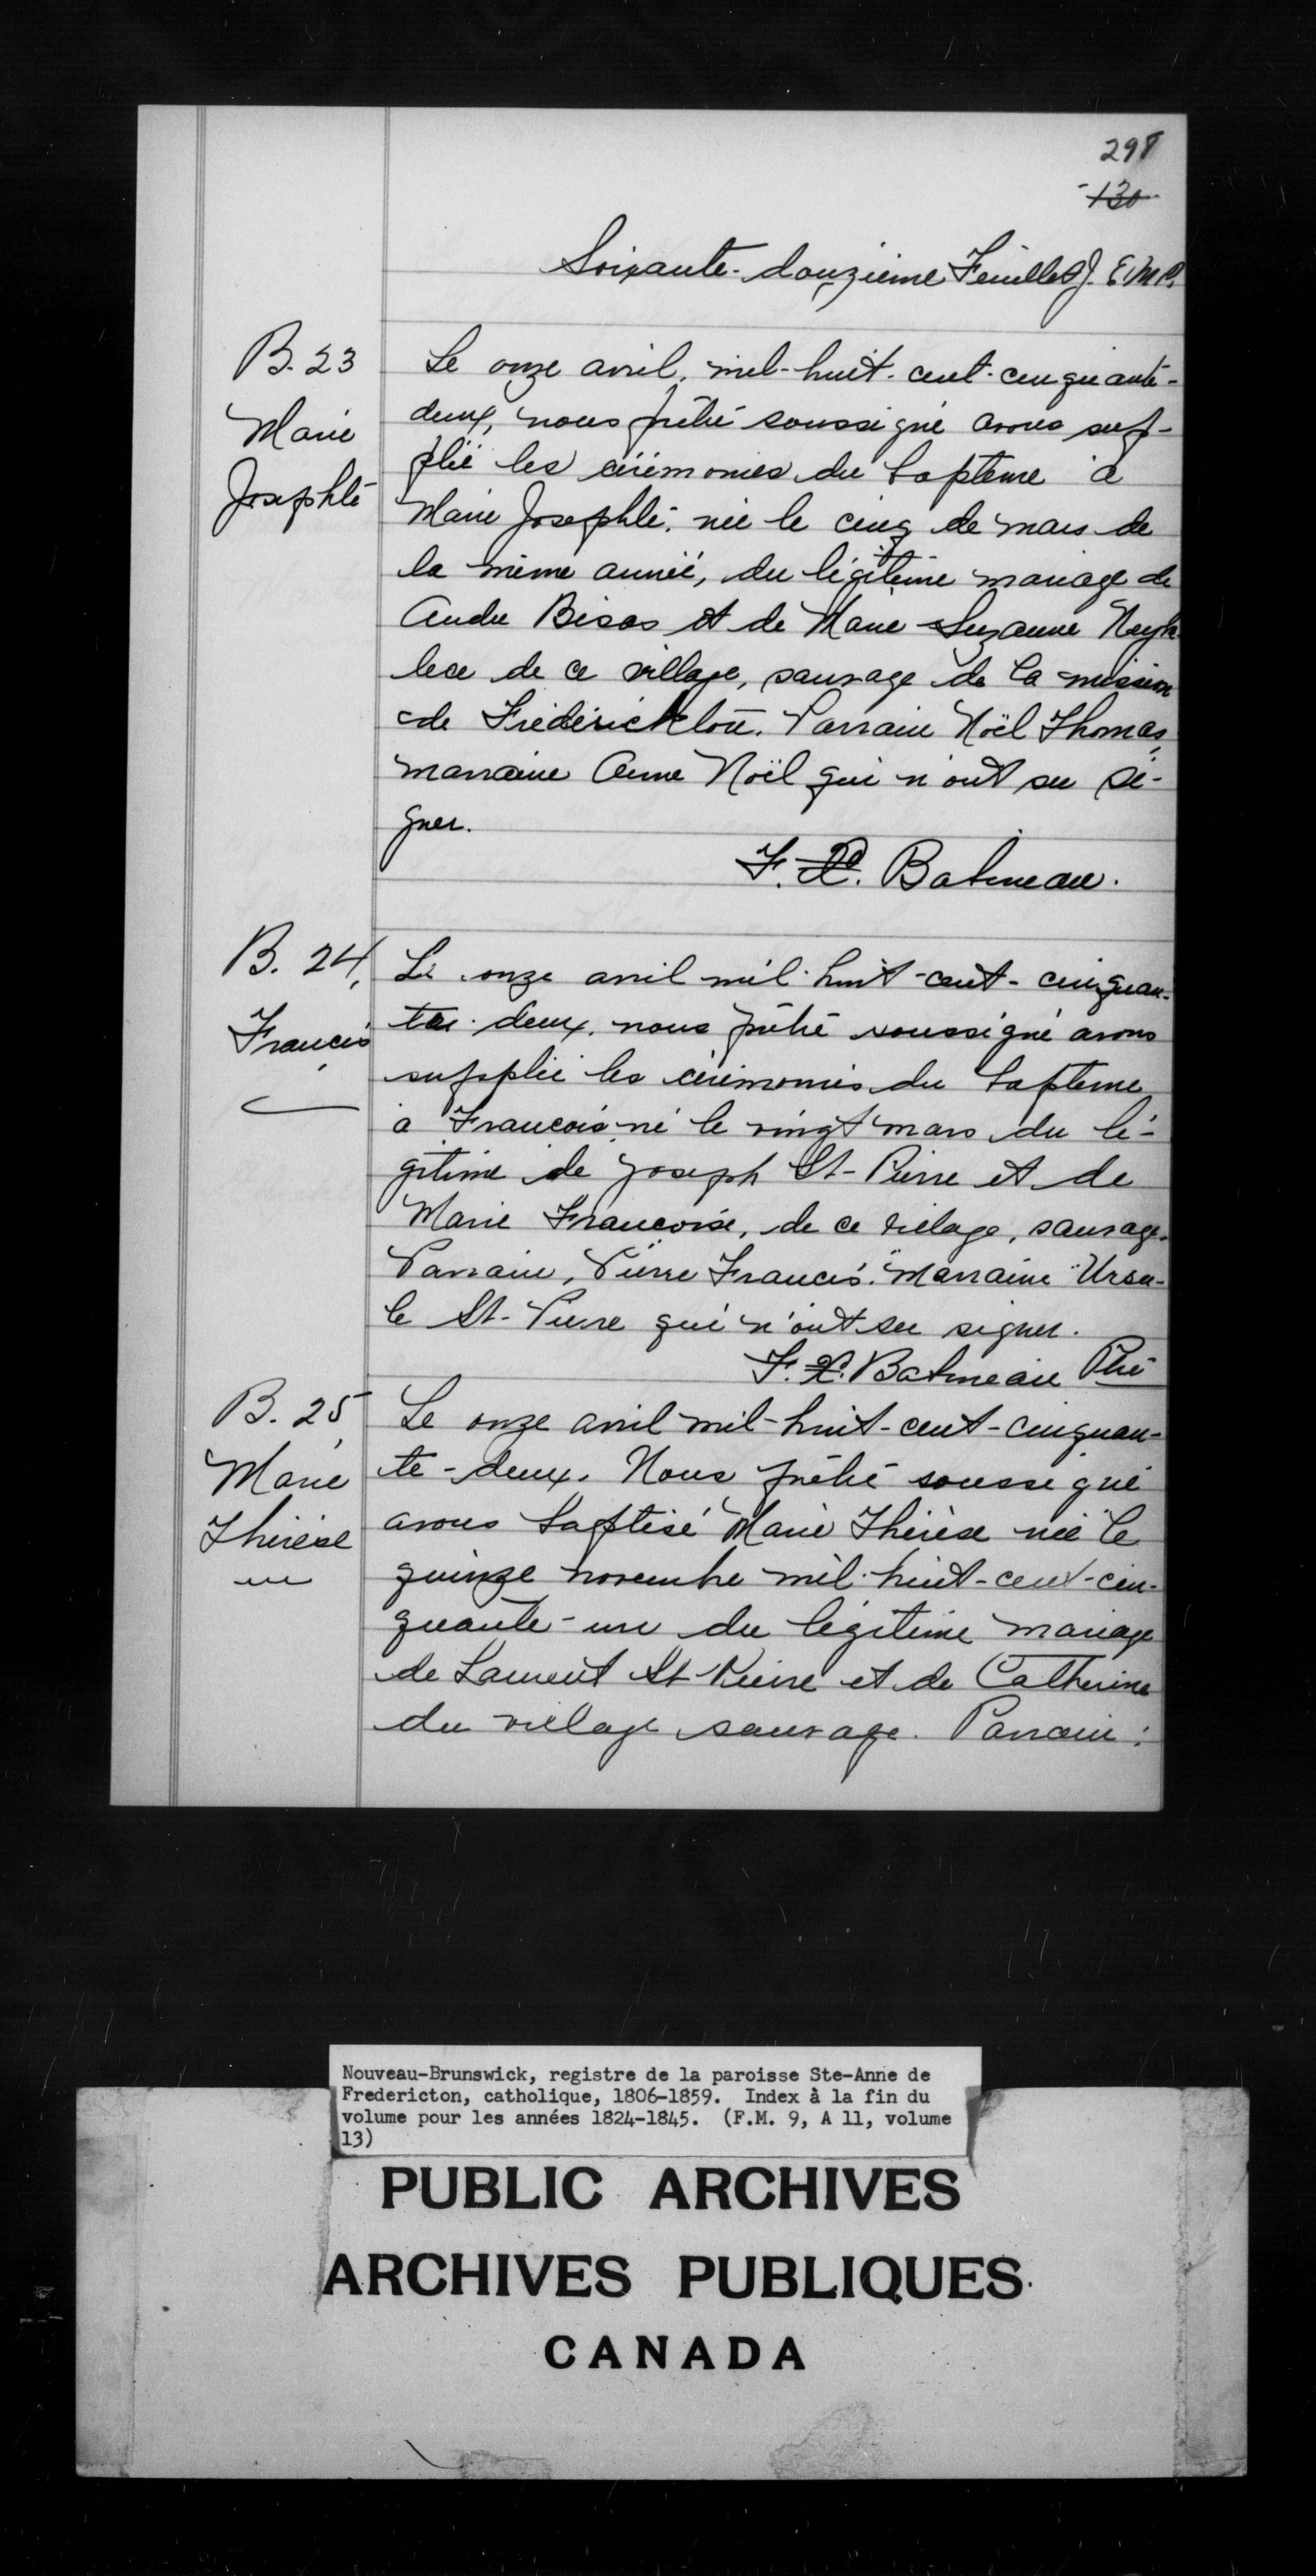 298
130
Soixante-douzième Feuillet J. E. M. P.
B. 23
Marie
Josephte
Le onze avril, mil-huit-cent-cinquante-
deux, nous prêtre soussigné avons sup-
pléé les cérémonies du baptême à
Marie Josephte, née le cinq de mars de
la même année, du légitime mariage de
André Bisas et de Marie Suzanne
de ce village, sauvage de la mission
de Frédérickton. Parrain Noël Thomas,
marraine Anne Noël qui n'ont su si-
gner.
F. X. Babineau.
B. 24,
Francis
Le onze avril mil-huit-cent-cinquan-
te-deux, nous prêtre soussigné avons
supplée les cérémonies du baptême
à François né le vingt mars du lé-
gitime de Joseph St-Pierre et de
Marie Françoise, de ce village, sauvage.
Parrain, Pierre Francis. Marraine Ursu-
le St-Pierre qui n'ont su signer.
F. X. Babineau Ptre
B. 25,
Marie
Thérèse
Le onze avril mil-huit-cent-cinquan-
te-deux. Nous prêtre soussigné
avons baptisé Marie Thérèse née le
quinze novembre mil-huit-cent-cin-
quante-un du légitime mariage
de Laurent St-Pierre et de Catherine
du village sauvage. Parrain:
Nouveau-Brunswick, registre de la paroisse Ste-Anne de
Fredericton, catholique, 1806-1859. Index à la fin du
volume pour les années 1824-1845. (F.M. 9, A 11, volume
13)
PUBLIC ARCHIVES
ARCHIVES PUBLIQUES
CANADA